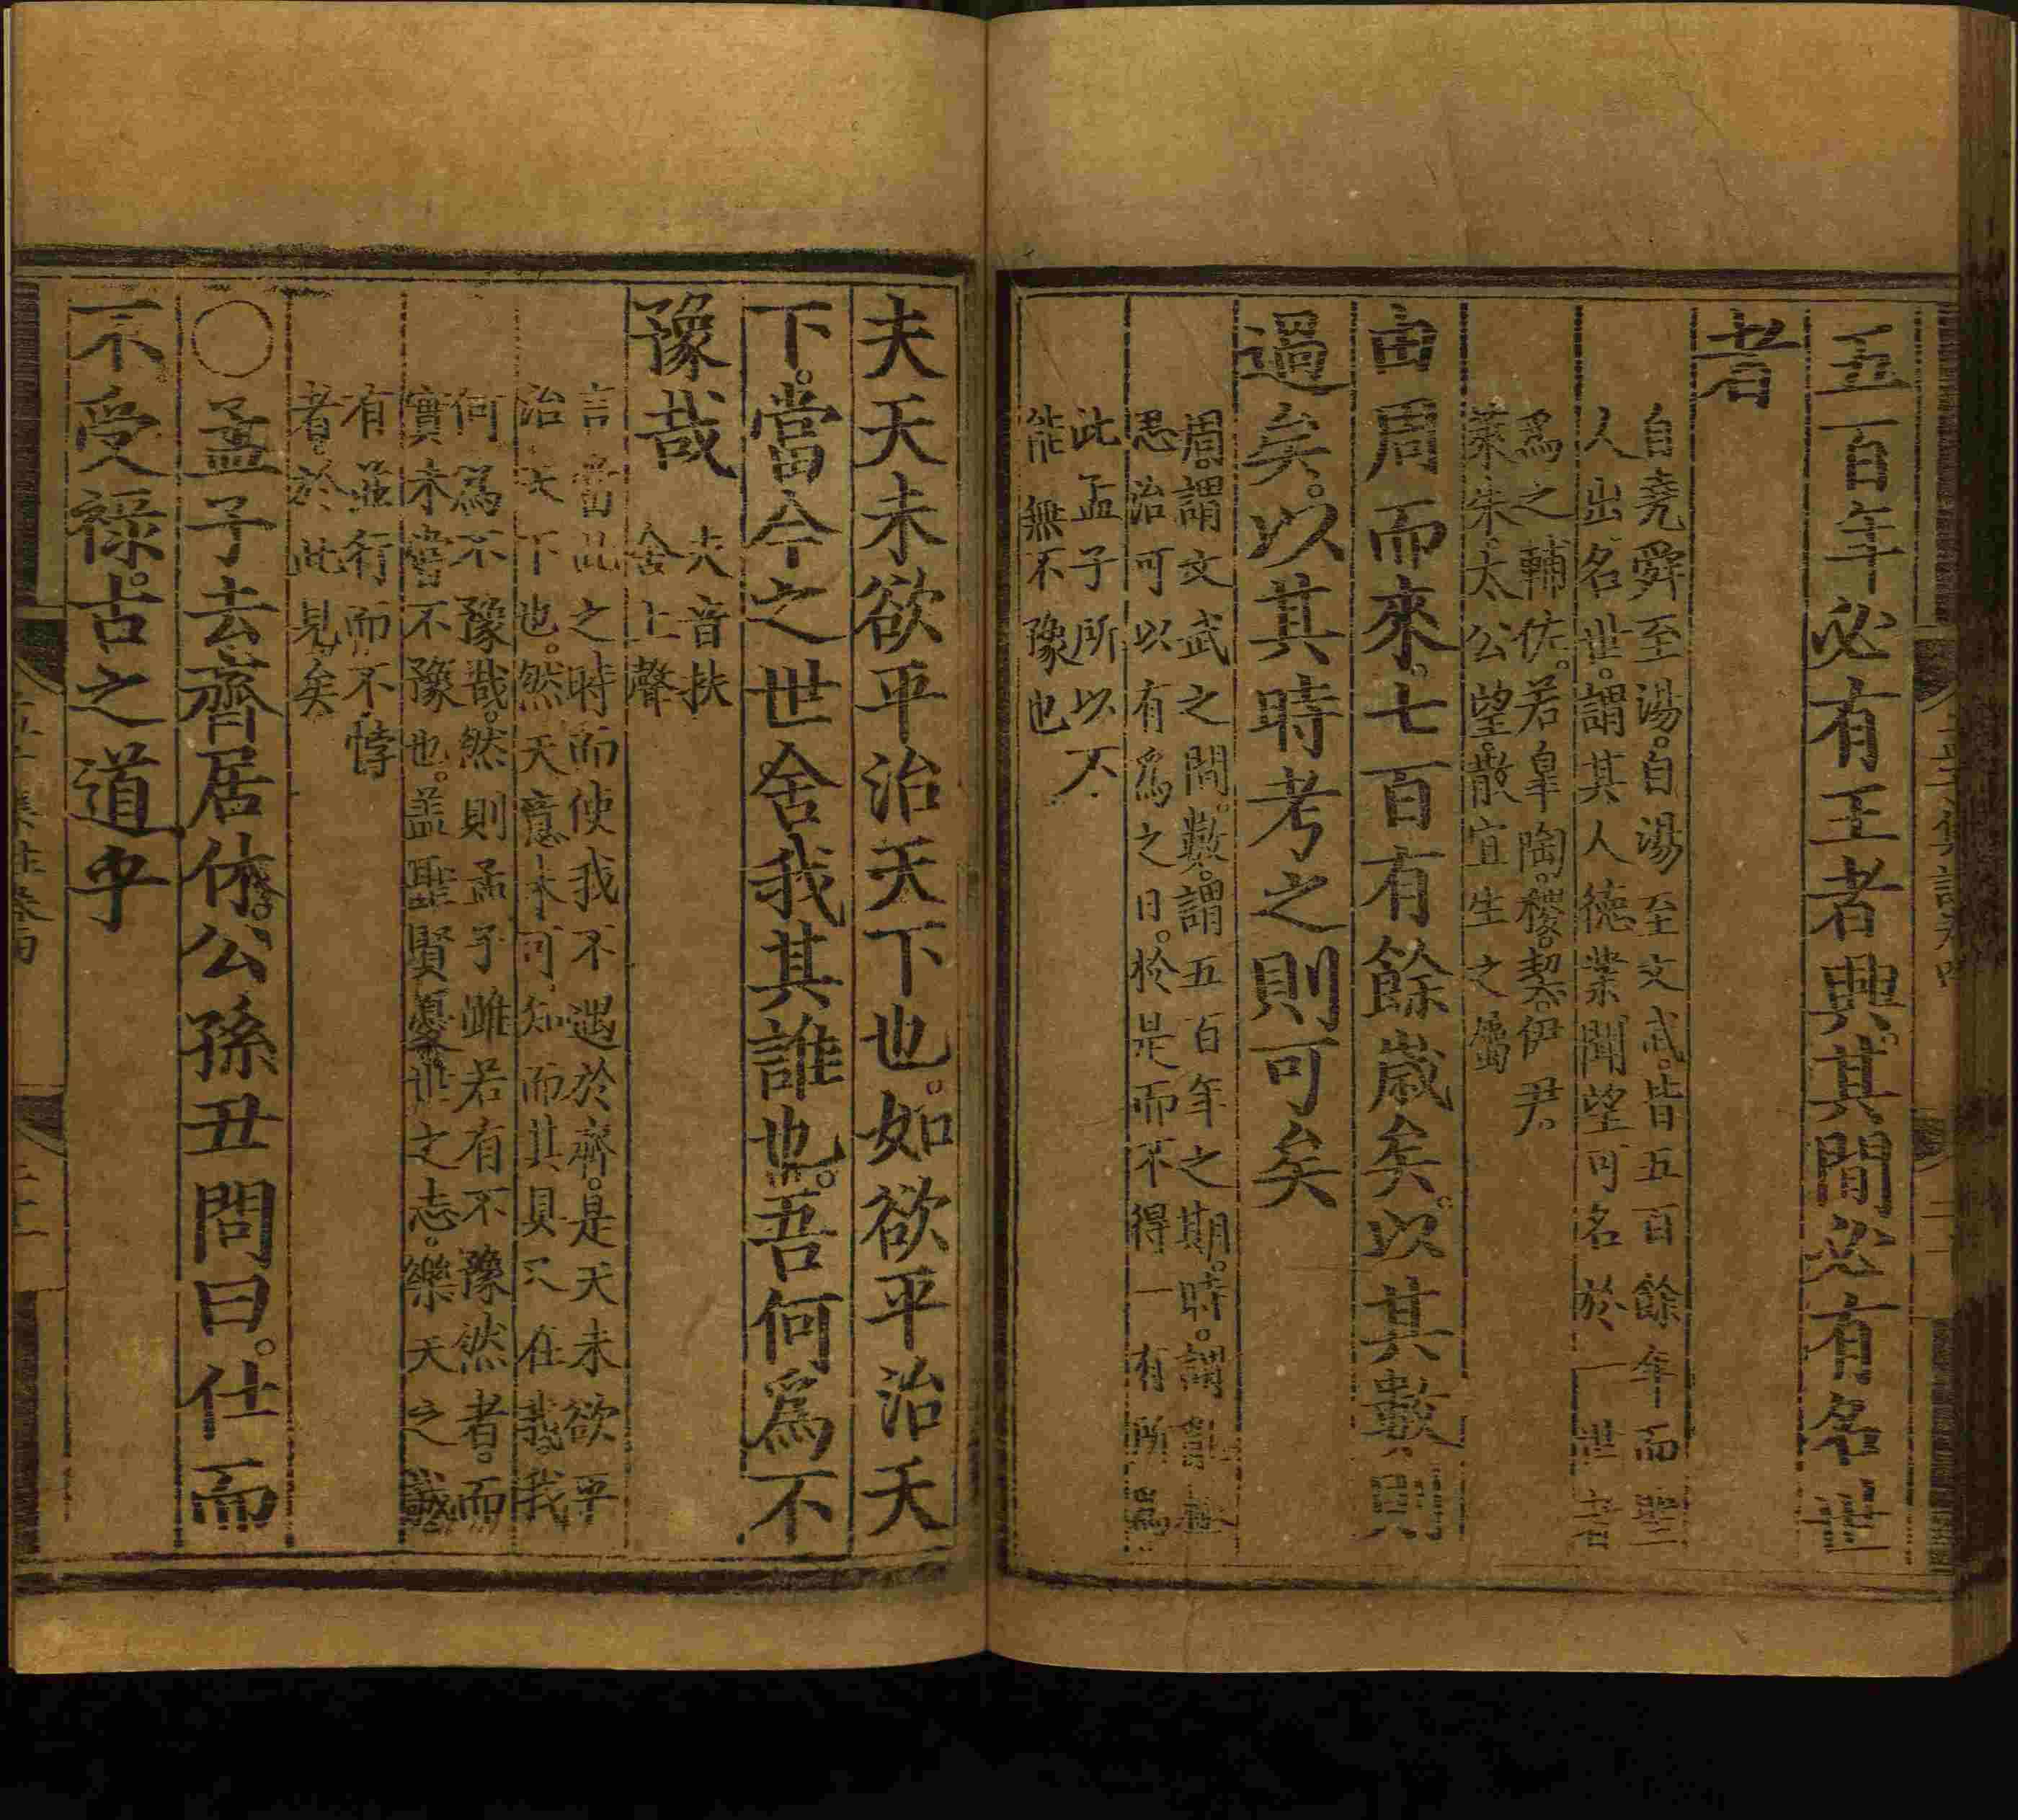 五百年必有王者興。其間必有名世
者
自堯舜至湯。自湯至文武。皆五百餘年而聖
人出名世。謂其人德業聞望可名於一世者
爲之輔佐。若皐陶。稷。契。伊尹。
萊朱。太公望。散宜生之屬
由周而來。七百有餘歲矣。以其數則
過矣。以其時考之則可矣
周。謂文武之間。數。謂五百年之期。時。謂
思治可以有爲之日。於是而不得一有所爲
此孟子所以不
能無不豫也
夫天未欲平治天下也。如欲平治天
下。當今之世舍我其誰也。吾何爲不
豫哉
夫音扶
舍上聲
言當此之時而使我不遇於齊。是天未欲平
治天下也。然天意未可知而其具又在我。我
何爲不豫哉。然則孟子雖若有不豫然者。而
實未嘗不豫也。蓋聖賢憂世之志。樂天之誠
有並行而不悖
者。於此見矣
〇孟子去齊居休。公孫丑問曰。仕而
不受祿。古之道乎